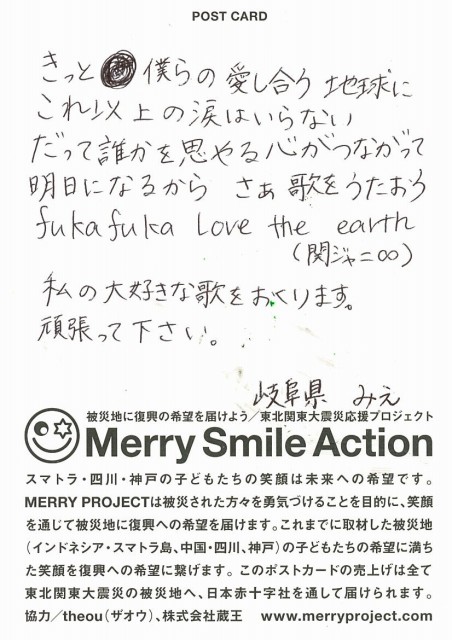 POST CARD
きっと 僕らの愛し合う地球に
これ以上の涙はいらない
だって誰かを思やる心がつながって
明日になるから さぁ歌をうたおう
fukafuka Love the earth
(関ジャニ∞)
私の大好きな歌をおくります。
頑張って下さい。
岐阜県 みえ
被災地に復興の希望を届けよう/東北関東大震災応援プロジェクト
Merry Smile Action
スマトラ・四川・神戸の子どもたちの笑顔は未来への希望です。
MERRY PROJECTは被災された方々を勇気づけることを目的に、笑顔
を通じて被災地に復興への希望を届けます。これまでに取材した被災地
(インドネシア・スマトラ島、中国・四川、神戸)の子どもたちの希望に満ち
た笑顔を復興への希望に繋げます。このポストカードの売上げは全て
東北関東大震災の被災地へ、日本赤十字社を通して届けられます。
協力/theou(ザオウ)、株式会社蔵王 www.merryproject.com